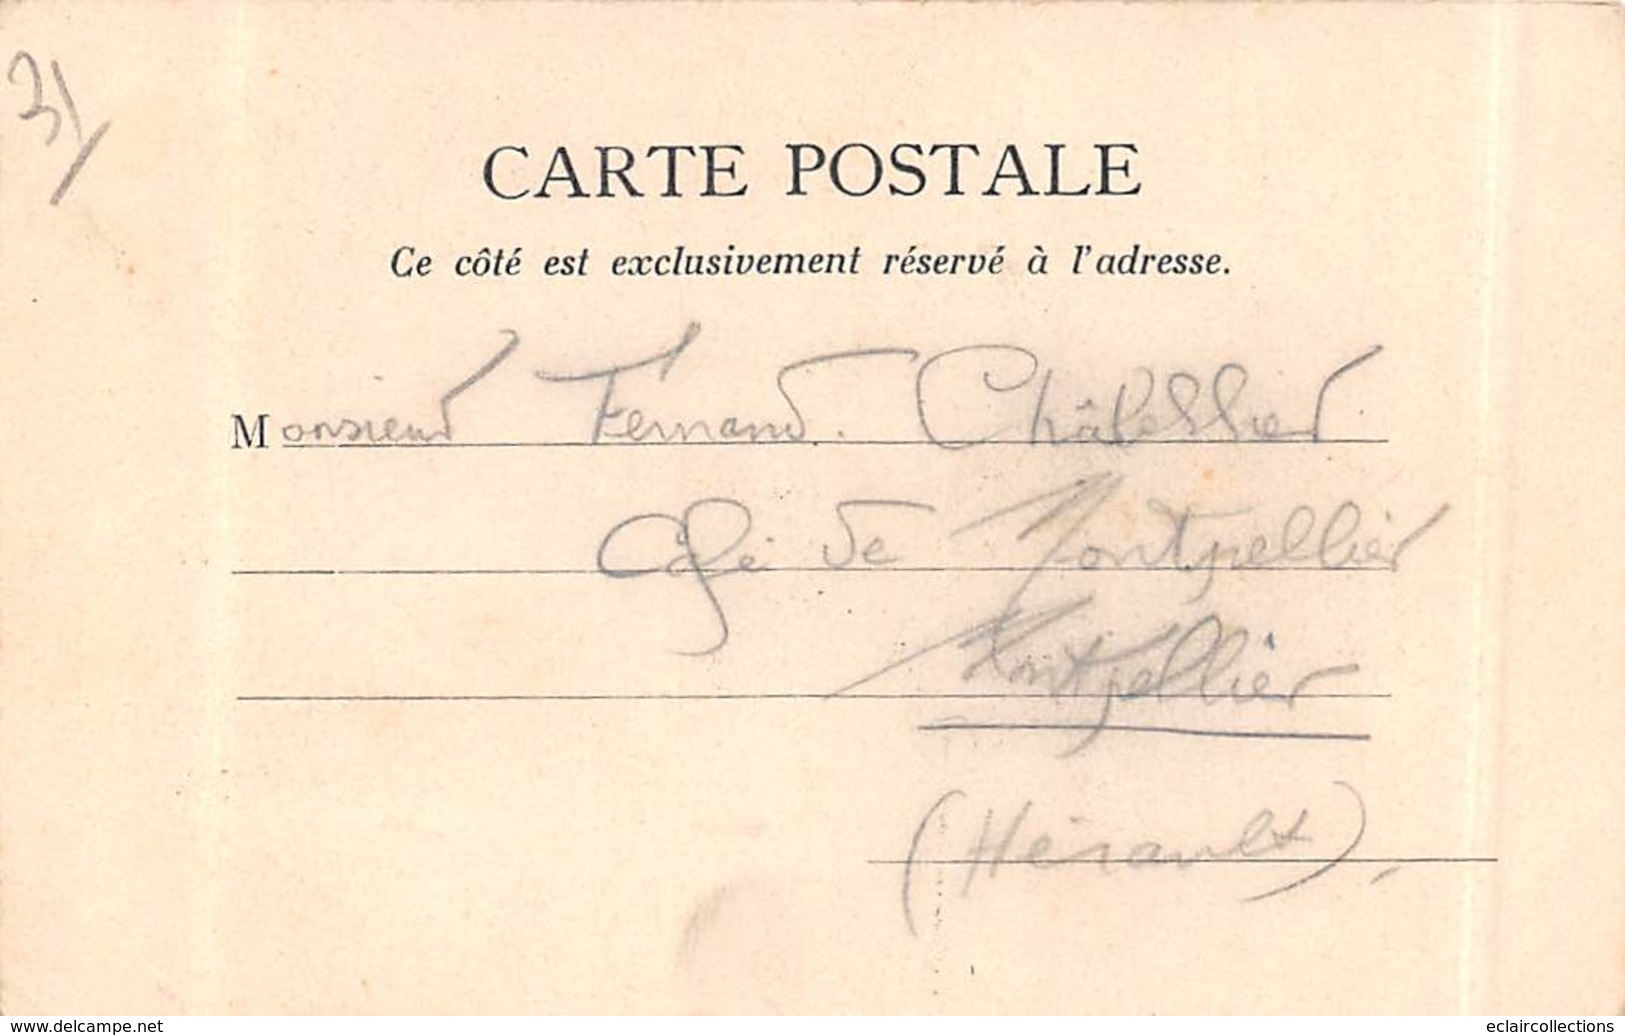 31
CARTE POSTALE
Ce côté est exclusivement réservé à l'adresse.
Monsieur Fernand Châtellier
Café de Montpellier
Montpellier
(Hérault)
www.delcampe.net
eclaircollections